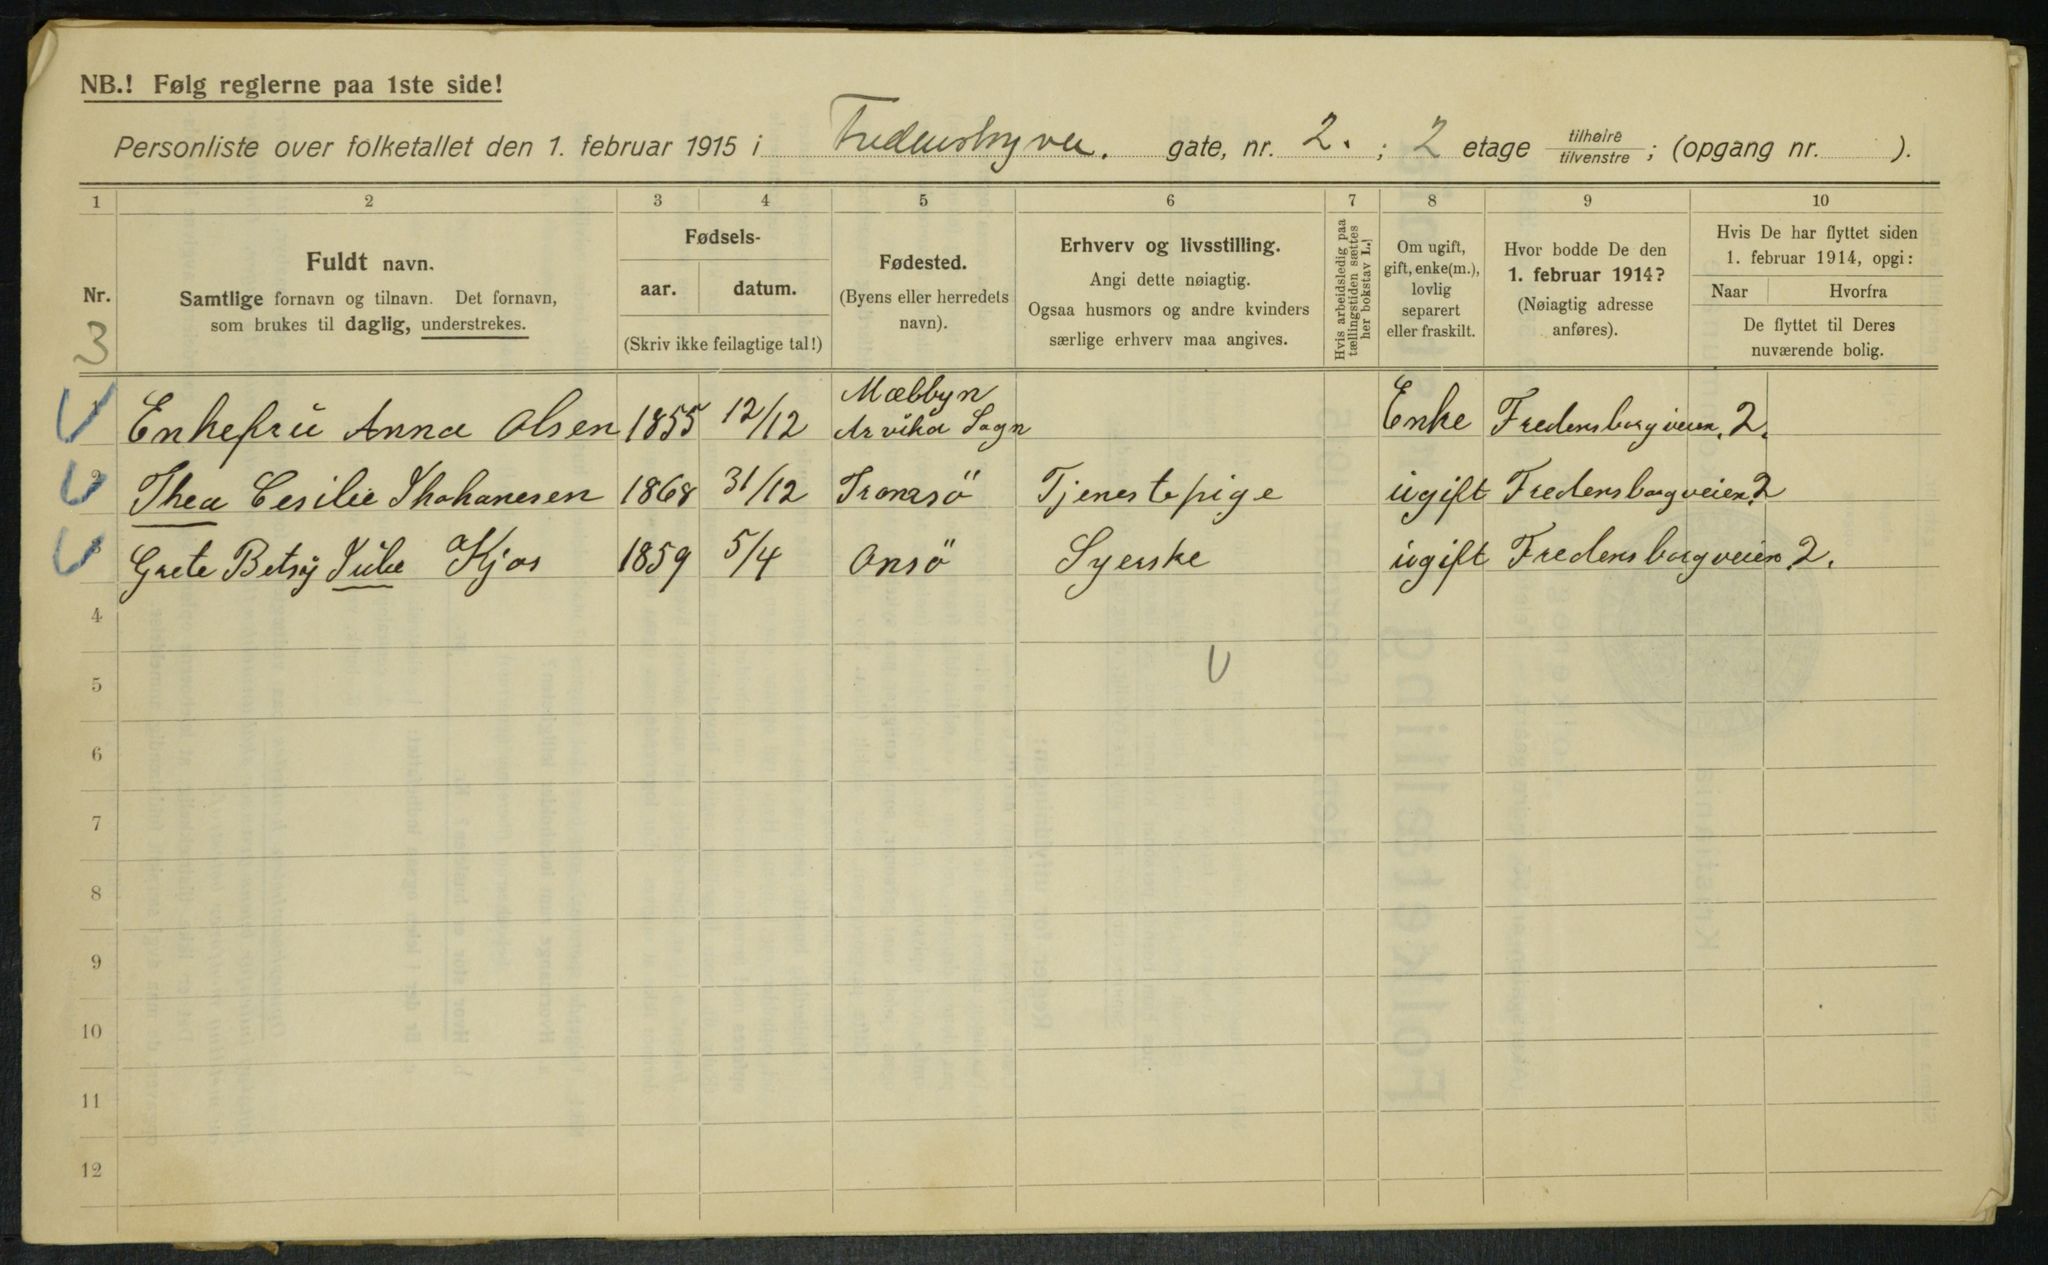 NB.! Følg reglerne paa 1ste side!
Personliste over folketallet den 1. februar 1915 i Fredensbgvei. gate, nr. 2. ; 2 etage tilhøire tilvenstre ; (opgang nr. ).
1 2 3 4 5 6 7 8 9 10
Nr.
3
Fuldt navn.
Samtlige fornavn og tilnavn. Det fornavn,
som brukes til daglig, understrekes.
Fødsels-
aar. datum.
(Skriv ikke feilagtige tal!)
Fødested.
(Byens eller herredets
navn).
Erhverv og livsstilling.
Angi dette nøiagtig.
Ogsaa husmors og andre kvinders
særlige erhverv maa angives.
Hvis arbeidsledig paa
tællingstiden sættes
her bokstav L.]
Om ugift,
gift, enke(m.),
lovlig
separert
eller fraskilt.
Hvor bodde De den
1. februar 1914?
(Nøiagtig adresse
anføres).
Hvis De har flyttet siden
1. februar 1914, opgi:
Naar Hvorfra
De flyttet til Deres
nuværende bolig.
1 Enkefru Anna Olsen 1855 12/12 Mæbbyn Arvika Sogn Enke Fredensborgveien. 2.
2 Thea Cesilie Thohanesen 1868 31/12 Tromsö Tjenestepige ugift Fredensborgveien 2
3 Grete Betsy Julie Kjos 1859 5/4 Onsö Syerske ugift Fredensborgveien. 2.
4
5
6
7
8
9
10
11
12